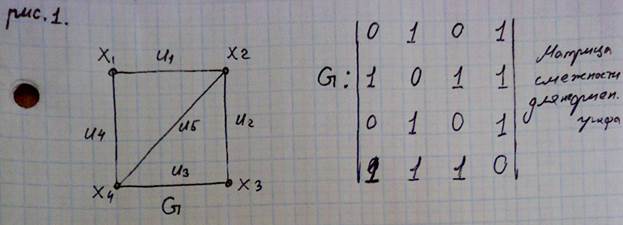 рис. 1.
X1 U1 X2
U4 U5 U2
U3
X4 X3
G
G:
0 1 0 1
1 0 1 1
0 1 0 1
1 1 1 0
Матрица
смежности
для
графа